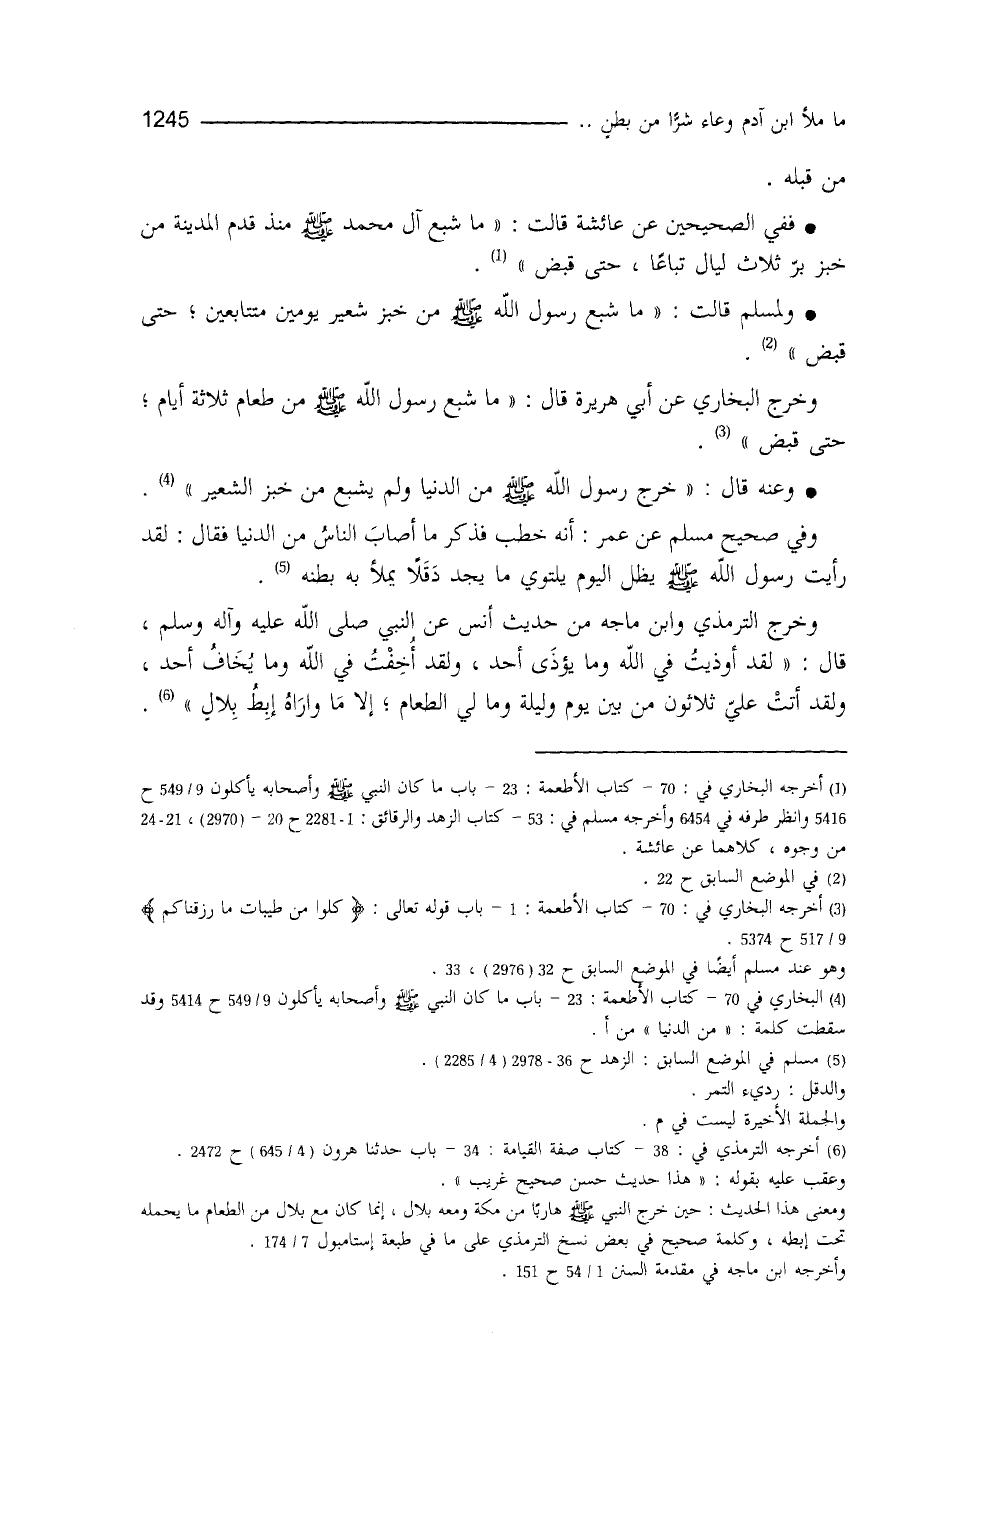 ما ملأ ابن آدم وعاء شرًّا من بطنٍ .. 1245
من قبله .
● ففي الصحيحين عن عائشة قالت : « ما شبع آل محمد ﷺ منذ قدم المدينة من
خبز برّ ثلاث ليال تباعًا ، حتى قبض » (1) .
● ولمسلم قالت : « ما شبع رسول اللّه ﷺ من خبز شعير يومين متتابعين ؛ حتى
قبض » (2) .
وخرج البخاري عن أبي هريرة قال : « ما شبع رسول اللّه ﷺ من طعام ثلاثة أيام ؛
حتى قبض » (3) .
● وعنه قال : « خرج رسول اللّه ﷺ من الدنيا ولم يشبع من خبز الشعير » (4) .
وفي صحيح مسلم عن عمر : أنه خطب فذكر ما أصابَ الناسُ من الدنيا فقال : لقد
رأيت رسول اللّه ﷺ يظل اليوم يلتوي ما يجد دَقَلًا يملأ به بطنه (5) .
وخرج الترمذي وابن ماجه من حديث أنس عن النبي صلى اللّه عليه وآله وسلم ،
قال : « لقد أوذيتُ في اللّه وما يؤذَى أحد ، ولقد أُخِفْتُ في اللّه وما يُخَافُ أحد ،
ولقد أتتْ عليّ ثلاثون من بين يوم وليلة وما لي الطعام ؛ إلا مَا وارَاهُ إبِطُ بِلالٍ » (6) .
(1) أخرجه البخاري في : 70 - كتاب الأطعمة : 23 - باب ما كان النبي ﷺ وأصحابه يأكلون 9 / 549 ح
5416 وانظر طرفه في 6454 وأخرجه مسلم في : 53 - كتاب الزهد والرقائق : 1-2281 ح 20 - (2970) ، 21-24
من وجوه ، كلاهما عن عائشة .
(2) في الموضع السابق ح 22 .
(3) أخرجه البخاري في : 70 - كتاب الأطعمة : 1 - باب قوله تعالى : ﴿ كلوا من طيبات ما رزقناكم ﴾
9 / 517 ح 5374 .
وهو عند مسلم أيضًا في الموضع السابق ح 32 (2976) ، 33 .
(4) البخاري في 70 - كتاب الأطعمة : 23 - باب ما كان النبي ﷺ وأصحابه يأكلون 9 / 549 ح 5414 وقد
سقطت كلمة : « من الدنيا » من أ .
(5) مسلم في الموضع السابق : الزهد ح 36 - 2978 ( 4 / 2285 ) .
والدقل : رديء التمر .
والجملة الأخيرة ليست في م .
(6) أخرجه الترمذي في : 38 - كتاب صفة القيامة : 34 - باب حدثنا هرون ( 4 / 645 ) ح 2472 .
وعقب عليه بقوله : « هذا حديث حسن صحيح غريب » .
ومعنى هذا الحديث : حين خرج النبي ﷺ هاربًا من مكة ومعه بلال ، إنما كان مع بلال من الطعام ما يحمله
تحت إبطه ، وكلمة صحيح في بعض نسخ الترمذي على ما في طبعة إستامبول 7 / 174 .
وأخرجه ابن ماجه في مقدمة السنن 1 / 54 ح 151 .